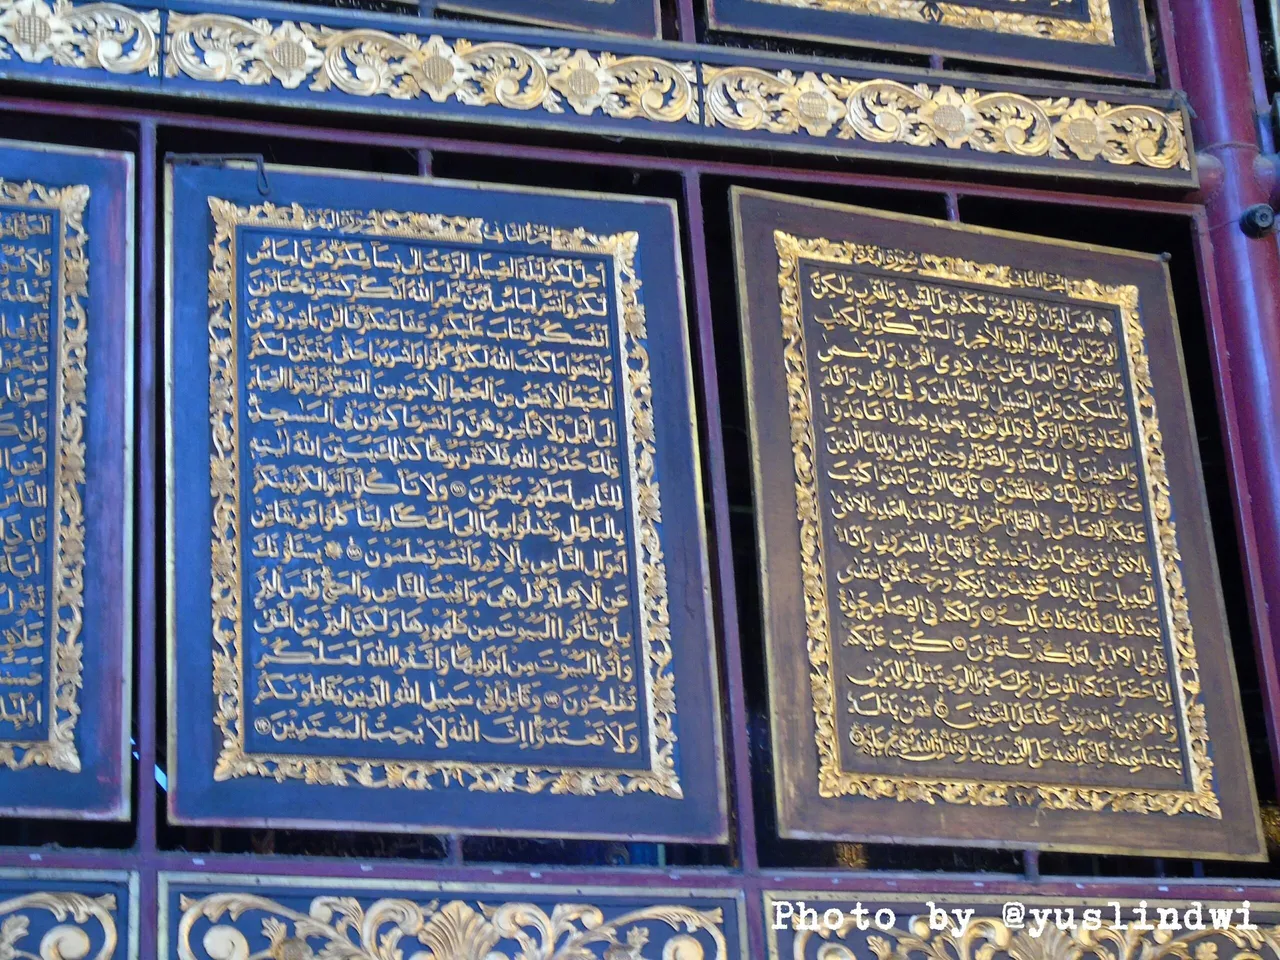 الجزء الثاني سورة البقرة
لَيْسَ الْبِرَّ أَنْ تُوَلُّوا وُجُوهَكُمْ قِبَلَ الْمَشْرِقِ وَالْمَغْرِبِ وَلَكِنَّ
الْبِرَّ مَنْ آمَنَ بِاللَّهِ وَالْيَوْمِ الْآخِرِ وَالْمَلَائِكَةِ وَالْكِتَابِ
وَالنَّبِيِّينَ وَآتَى الْمَالَ عَلَى حُبِّهِ ذَوِي الْقُرْبَى وَالْيَتَامَى
وَالْمَسَاكِينَ وَابْنَ السَّبِيلِ وَالسَّائِلِينَ وَفِي الرِّقَابِ وَأَقَامَ
الصَّلَاةَ وَآتَى الزَّكَاةَ وَالْمُوفُونَ بِعَهْدِهِمْ إِذَا عَاهَدُوا
وَالصَّابِرِينَ فِي الْبَأْسَاءِ وَالضَّرَّاءِ وَحِينَ الْبَأْسِ أُولَئِكَ الَّذِينَ
صَدَقُوا وَأُولَئِكَ هُمُ الْمُتَّقُونَ ١٧٧ يَا أَيُّهَا الَّذِينَ آمَنُوا كُتِبَ
عَلَيْكُمُ الْقِصَاصُ فِي الْقَتْلَى الْحُرُّ بِالْحُرِّ وَالْعَبْدُ بِالْعَبْدِ وَالْأُنْثَى
بِالْأُنْثَى فَمَنْ عُفِيَ لَهُ مِنْ أَخِيهِ شَيْءٌ فَاتِّبَاعٌ بِالْمَعْرُوفِ وَأَدَاءٌ
إِلَيْهِ بِإِحْسَانٍ ذَلِكَ تَخْفِيفٌ مِنْ رَبِّكُمْ وَرَحْمَةٌ فَمَنِ اعْتَدَى
بَعْدَ ذَلِكَ فَلَهُ عَذَابٌ أَلِيمٌ ١٧٨ وَلَكُمْ فِي الْقِصَاصِ حَيَاةٌ
يَا أُولِي الْأَلْبَابِ لَعَلَّكُمْ تَتَّقُونَ ١٧٩ كُتِبَ عَلَيْكُمْ
إِذَا حَضَرَ أَحَدَكُمُ الْمَوْتُ إِنْ تَرَكَ خَيْرًا الْوَصِيَّةُ لِلْوَالِدَيْنِ
وَالْأَقْرَبِينَ بِالْمَعْرُوفِ حَقًّا عَلَى الْمُتَّقِينَ ١٨٠ فَمَنْ بَدَّلَهُ
بَعْدَ مَا سَمِعَهُ فَإِنَّمَا إِثْمُهُ عَلَى الَّذِينَ يُبَدِّلُونَهُ إِنَّ اللَّهَ سَمِيعٌ عَلِيمٌ ١٨١
٢٧
الجزء الثاني سورة البقرة
أُحِلَّ لَكُمْ لَيْلَةَ الصِّيَامِ الرَّفَثُ إِلَى نِسَائِكُمْ هُنَّ لِبَاسٌ
لَكُمْ وَأَنْتُمْ لِبَاسٌ لَهُنَّ عَلِمَ اللَّهُ أَنَّكُمْ كُنْتُمْ تَخْتَانُونَ
أَنْفُسَكُمْ فَتَابَ عَلَيْكُمْ وَعَفَا عَنْكُمْ فَالْآنَ بَاشِرُوهُنَّ
وَابْتَغُوا مَا كَتَبَ اللَّهُ لَكُمْ وَكُلُوا وَاشْرَبُوا حَتَّى يَتَبَيَّنَ لَكُمُ
الْخَيْطُ الْأَبْيَضُ مِنَ الْخَيْطِ الْأَسْوَدِ مِنَ الْفَجْرِ ثُمَّ أَتِمُّوا الصِّيَامَ
إِلَى اللَّيْلِ وَلَا تُبَاشِرُوهُنَّ وَأَنْتُمْ عَاكِفُونَ فِي الْمَسَاجِدِ
تِلْكَ حُدُودُ اللَّهِ فَلَا تَقْرَبُوهَا كَذَلِكَ يُبَيِّنُ اللَّهُ آيَاتِهِ
لِلنَّاسِ لَعَلَّهُمْ يَتَّقُونَ ١٨٧ وَلَا تَأْكُلُوا أَمْوَالَكُمْ بَيْنَكُمْ
بِالْبَاطِلِ وَتُدْلُوا بِهَا إِلَى الْحُكَّامِ لِتَأْكُلُوا فَرِيقًا مِنْ
أَمْوَالِ النَّاسِ بِالْإِثْمِ وَأَنْتُمْ تَعْلَمُونَ ١٨٨ يَسْأَلُونَكَ
عَنِ الْأَهِلَّةِ قُلْ هِيَ مَوَاقِيتُ لِلنَّاسِ وَالْحَجِّ وَلَيْسَ الْبِرُّ
بِأَنْ تَأْتُوا الْبُيُوتَ مِنْ ظُهُورِهَا وَلَكِنَّ الْبِرَّ مَنِ اتَّقَى
وَأْتُوا الْبُيُوتَ مِنْ أَبْوَابِهَا وَاتَّقُوا اللَّهَ لَعَلَّكُمْ
تُفْلِحُونَ ١٨٩ وَقَاتِلُوا فِي سَبِيلِ اللَّهِ الَّذِينَ يُقَاتِلُونَكُمْ
وَلَا تَعْتَدُوا إِنَّ اللَّهَ لَا يُحِبُّ الْمُعْتَدِينَ ١٩٠
٢٩
Photo by @yuslindwi